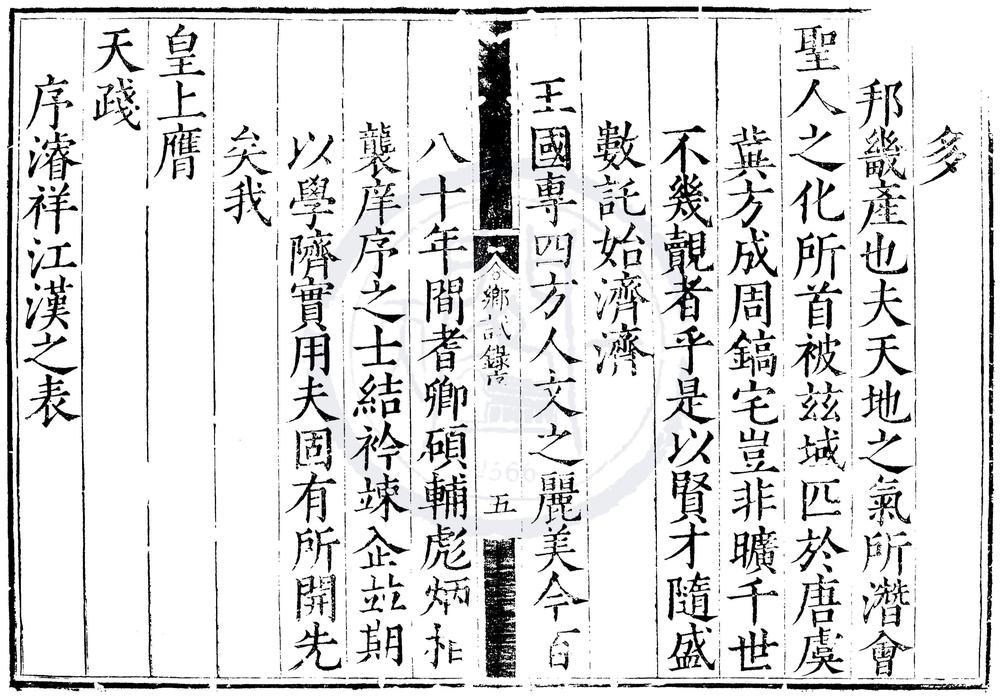 多
邦畿產也夫天地之氣所潛會
聖人之化所首被茲域匹於唐虞
冀方成周鎬宅豈非曠千世
不幾覩者乎是以賢才隨盛
數託始濟濟
王國專四方人文之麗美今百
鄉試錄
五
八十年間耆卿碩輔彪炳相
襲庠序之士結衿竦企並期
以學隮實用夫固有所開先
矣我
皇上膺
天踐
序濬祥江漢之表